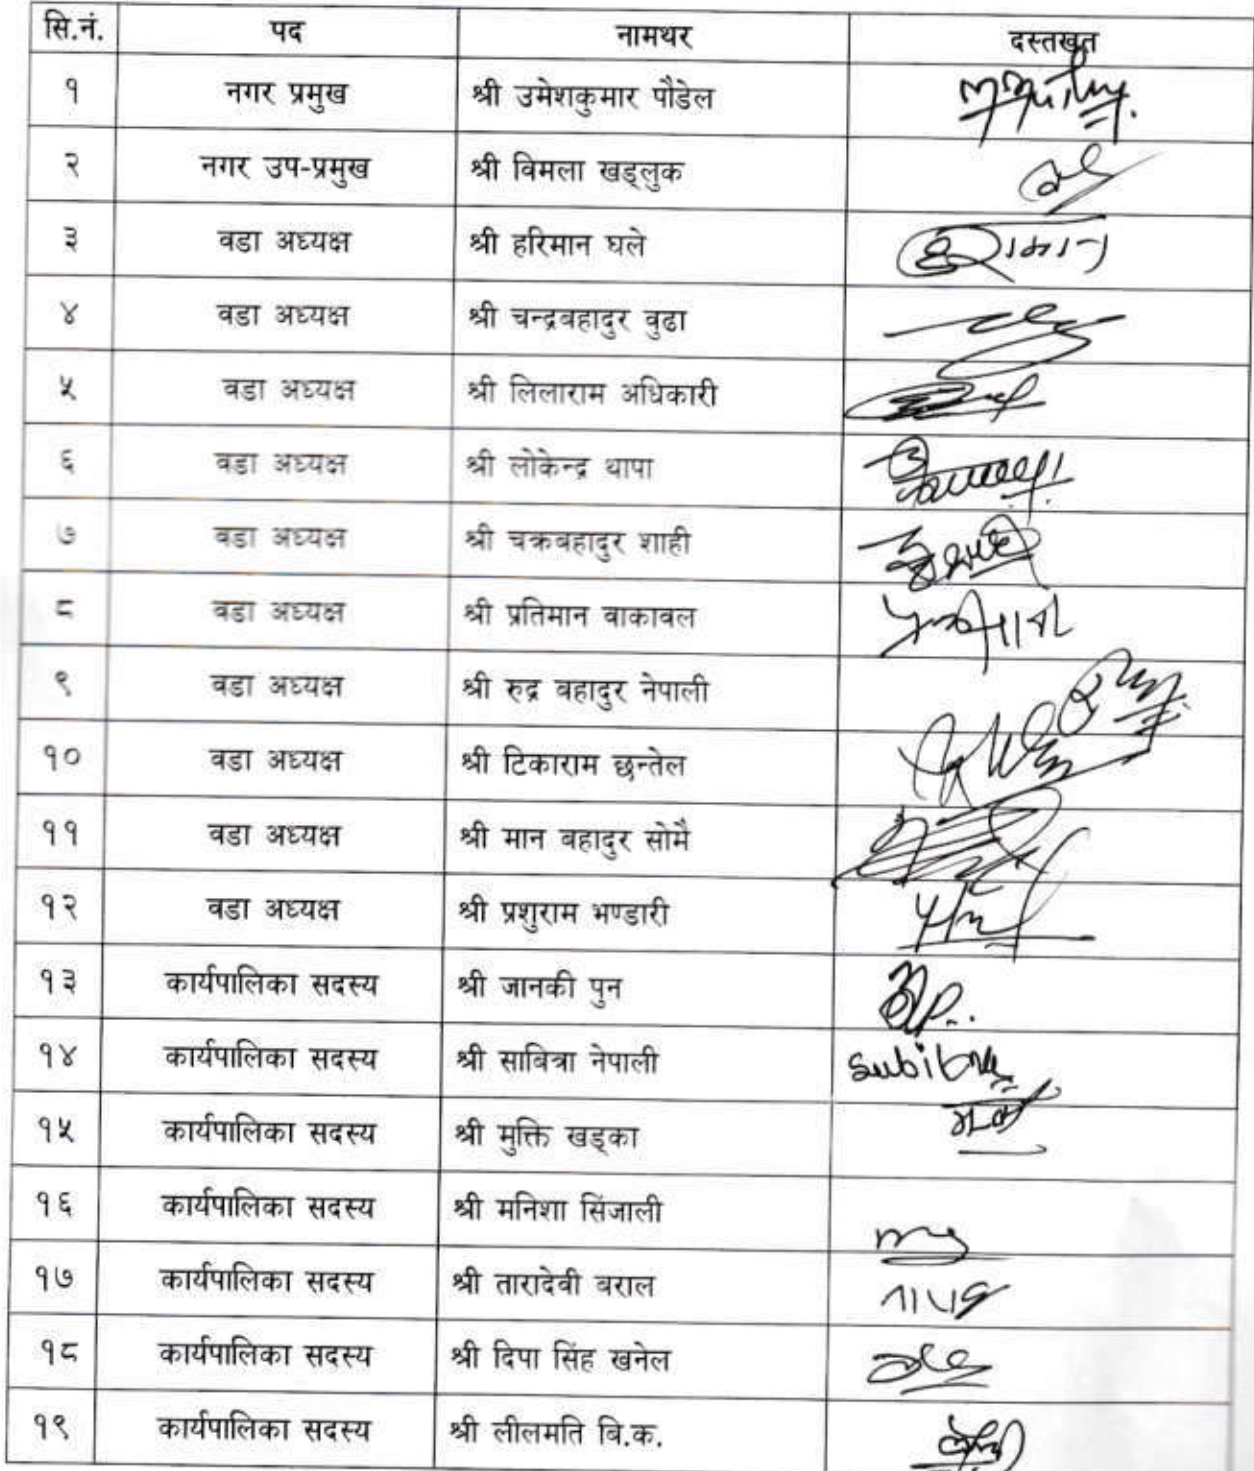 सि.नं. पद नामथर दस्तखत
१ नगर प्रमुख श्री उमेशकुमार पौडेल
२ नगर उप-प्रमुख श्री विमला खड्लुक
३ वडा अध्यक्ष श्री हरिमान घले
४ वडा अध्यक्ष श्री चन्द्रबहादुर वुढा
५ वडा अध्यक्ष श्री लिलाराम अधिकारी
६ वडा अध्यक्ष श्री लोकेन्द्र थापा
७ वडा अध्यक्ष श्री चक्रबहादुर शाही
८ वडा अध्यक्ष श्री प्रतिमान वाकावल
९ वडा अध्यक्ष श्री रुद्र बहादुर नेपाली
१० वडा अध्यक्ष श्री टिकाराम छन्तेल
११ वडा अध्यक्ष श्री मान बहादुर सोमै
१२ वडा अध्यक्ष श्री प्रशुराम भण्डारी
१३ कार्यपालिका सदस्य श्री जानकी पुन
१४ कार्यपालिका सदस्य श्री साबित्रा नेपाली
१५ कार्यपालिका सदस्य श्री मुक्ति खड्का
१६ कार्यपालिका सदस्य श्री मनिशा सिंजाली
१७ कार्यपालिका सदस्य श्री तारादेवी बराल
१८ कार्यपालिका सदस्य श्री दिपा सिंह खनेल
१९ कार्यपालिका सदस्य श्री लीलमति बि.क.